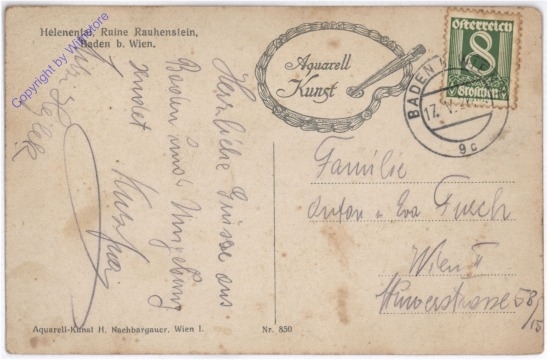 Helenental, Ruine Rauhenstein,
Baden b. Wien.
Aquarell
Kunst
Österreich
8
Groschen
BADEN
17.
9c
Herzliche Grüsse aus
Baden und Umgebung
sendet
Familie
Anton u Eva
Wien II
58/
15
Aquarell-Kunst H. Nachbargauer, Wien I.
Nr. 850
Copyright by Winstore